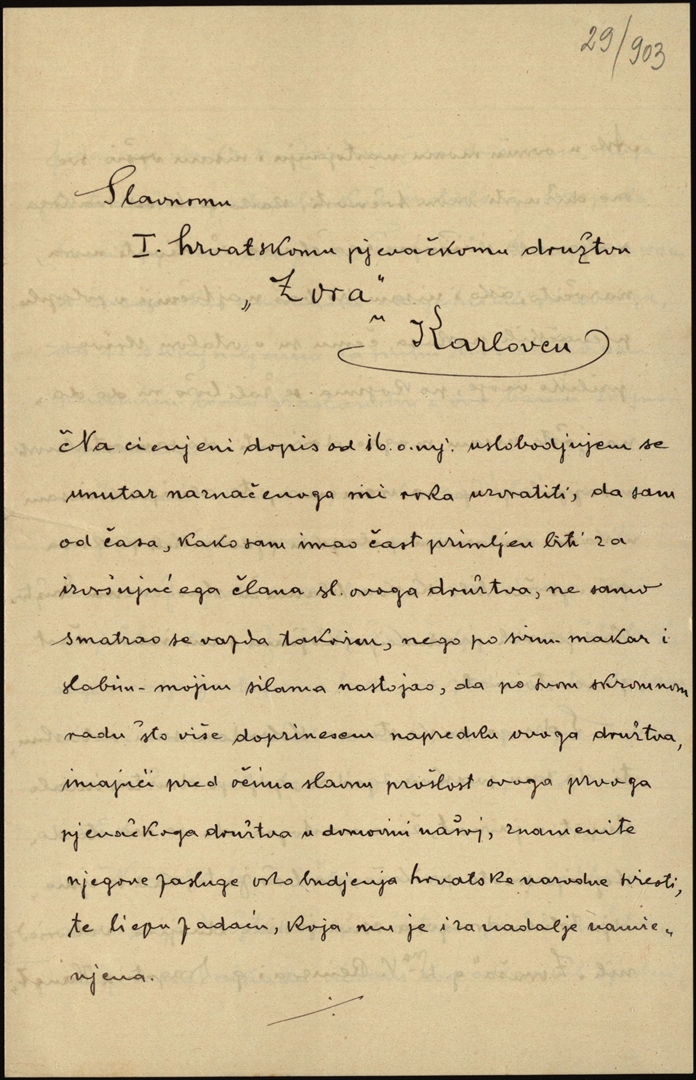 29/903
Slavnomu
I. hrvatskomu pjevačkomu družtvu
„Zora"
u
Karlovcu
Na cienjeni dopis od 16. o. mj. uslobodjujem se
unutar naznačenoga mi roka uzvratiti, da sam
od časa, kako sam imao čast primljen biti za
izvršujućega člana sl. ovoga društva, ne samo
smatrao se vazda takovim, nego po svim makar i
slabim mojim silama nastojao, da po svom skromnom
radu što više doprinesem napredku ovoga društva,
imajući pred očima slavnu prošlost ovoga prvoga
pjevačkoga društva u domovini našoj, znamenite
njegove zasluge oko budjenja hrvatske narodne sviesti,
te liepu zadaću, koja mu je i za nadalje namie„
njena.
./.